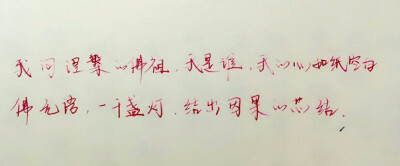 我问涅槃的佛祖，我是谁，我的心如纸空白
佛无语，一千盏灯，结出因果的芯结，